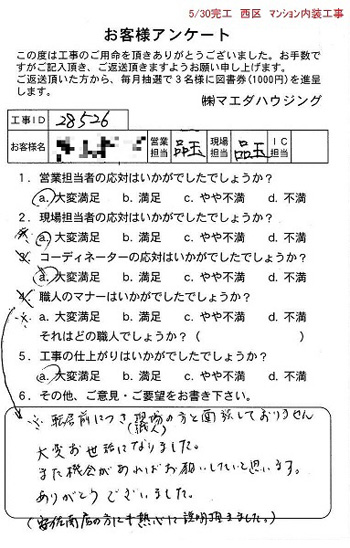 5/30完工 西区 マンション内装工事
お客様アンケート
この度は工事のご用命を頂きありがとうございました。お手数で
すがご記入頂き、ご返送頂きますようお願い申し上げます。
ご返送頂いた方から、毎月抽選で3名様に図書券(1000円)を進呈
します。
㈱マエダハウジング
工事ID 28526
お客様名 営業担当 品玉 現場担当 品玉 IC担当
1. 営業担当者の応対はいかがでしたでしょうか?
a. 大変満足 b. 満足 c. やや不満 d. 不満
2. 現場担当者の応対はいかがでしたでしょうか?
※ a. 大変満足 b. 満足 c. やや不満 d. 不満
3. コーディネーターの応対はいかがでしたでしょうか?
a. 大変満足 b. 満足 c. やや不満 d. 不満
4. 職人のマナーはいかがでしたでしょうか?
※ a. 大変満足 b. 満足 c. やや不満 d. 不満
それはどの職人でしょうか?( )
5. 工事の仕上がりはいかがでしたでしょうか?
a. 大変満足 b. 満足 c. やや不満 d. 不満
6. その他、ご意見・ご要望をお書き下さい。
※ 転居前につき 現場の方と面談しておりません
(職人)
大変お世話になりました。
また機会があればお願いしたいと思います。
ありがとうございました。
商店の方にも熱心に説明頂きました。)